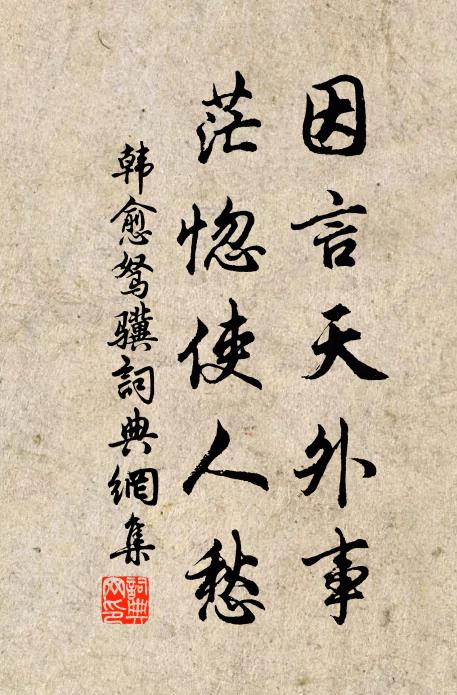 因言天外事
茫惚使人愁
韩愈驽骥詞典網集
詞典網印